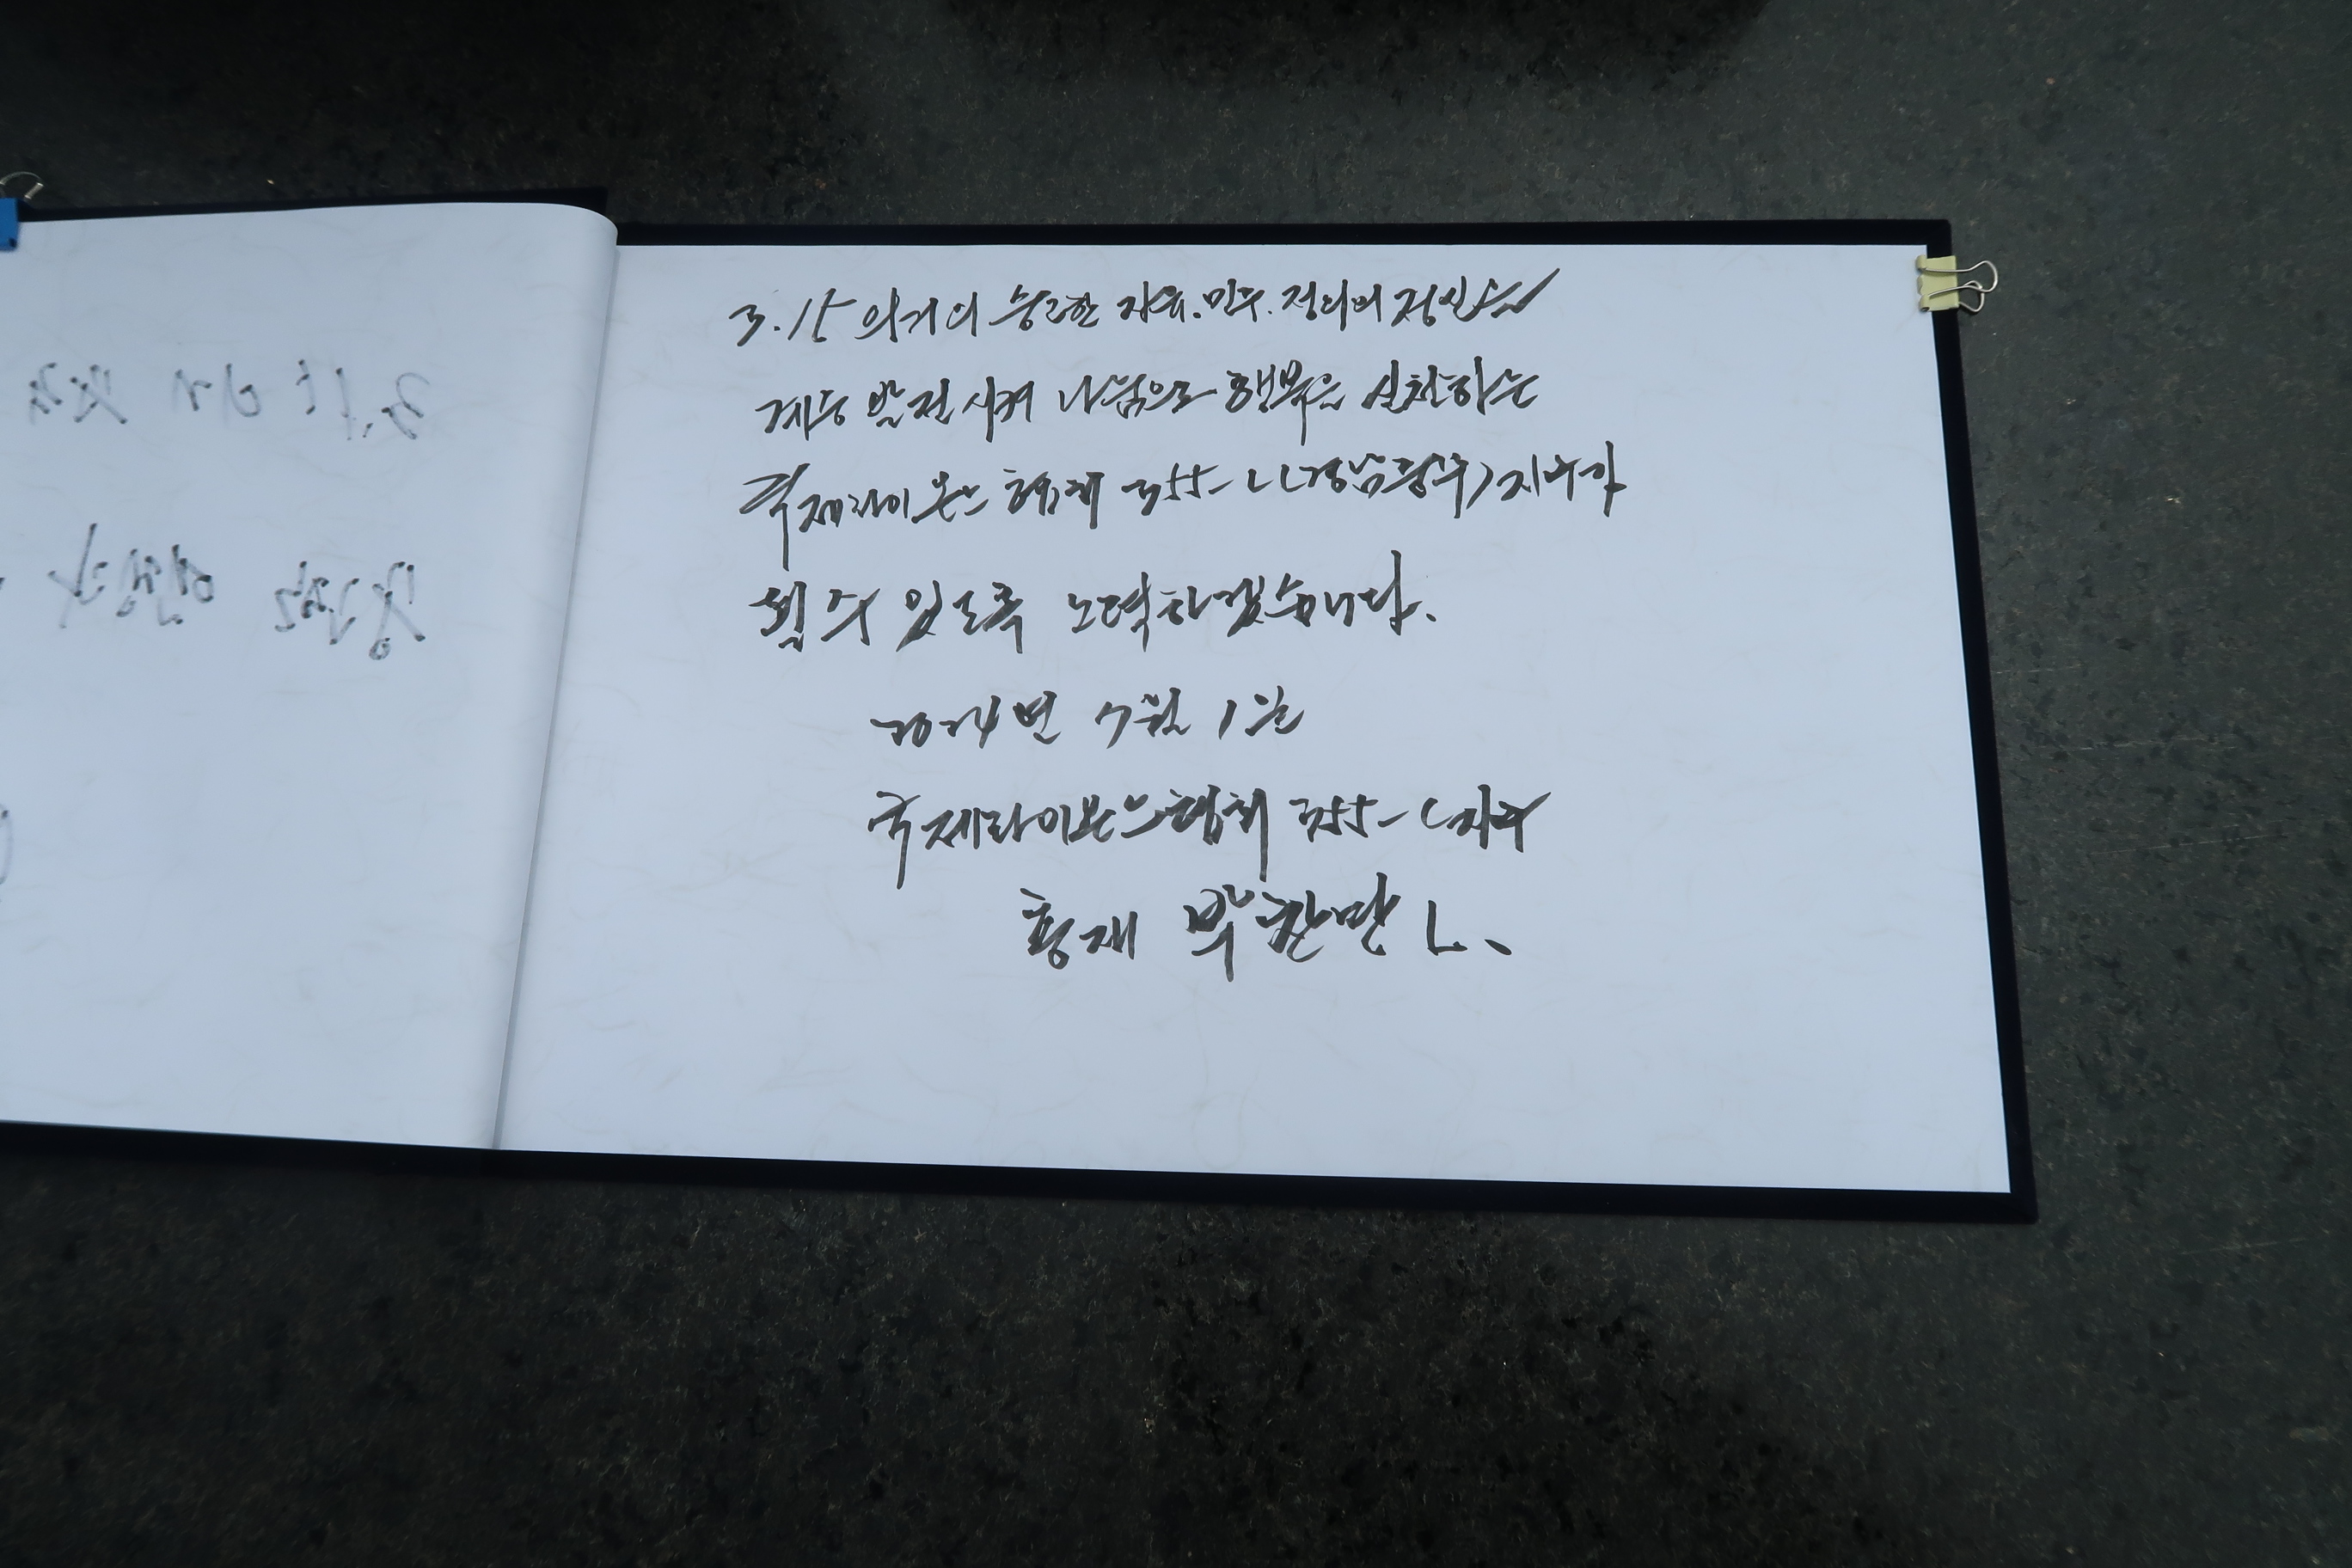 3.15 의거의 숭고한 자유.민주.정의의 정신을
계승 발전시켜 나눔으로 행복을 실천하는
국제라이온스 협회 355-C(경남중부)지구가
될 수 있도록 노력하겠습니다.
2024년 7월 1일
국제라이온스협회 355-C지구
총재 박찬만 L.